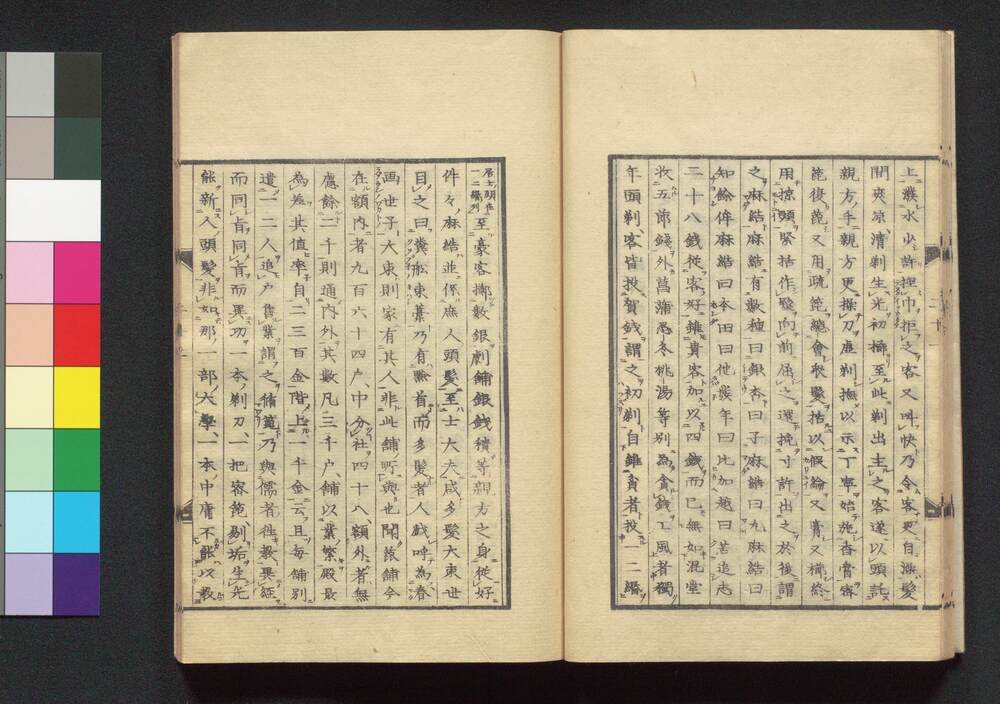 上濺水少許極巾拒之客又叫快乃令客更自滌髮
開爽凉清剃生光初極至此剃出主之客遂以頭託
親方手親方更操刀庭剃撫以示丁寧始施香膏密
篦復篦又用疏篦總會衆髮括以假綸又膏又櫛終
用掠頭緊括作髻向前屈之還挽寸許出之於後謂
之麻結麻結有數種曰銀杏曰子麻結曰丸麻結曰
知餘侔麻結曰本田曰何幾年曰比加越曰若追志
二十八錢從客好雖貴客加以四錢而已無如混堂
收五節錢外菖蒲忍冬桃湯等別為貪錢工風者獨
年面剃客皆投賀錢謂之初剃自雖貧者投一二緡
至豪客擲數銀劇鋪銀錢積等親方之身從好
件々麻結並係庶人頭髮至士大夫咸多髮大束世
目之曰糞船束藁乃有黔首而多髮者人戯呼為春
画世子大束則家有其人非此鋪所與也聞茲鋪今
在額內者九百六十四戶中分社四十八額外者無
慮餘二千則通內外其數凡三千戶鋪以業繁殿最
為差其值率自二三百金階上一千金云且每鋪別
遣一二人追戶售業謂之脩篦乃與儒者往教異經
而同肯同肯而異功一本剃刀一把密篦剔垢生光
能新人頭髮非如那一部大學一本中庸不能以教